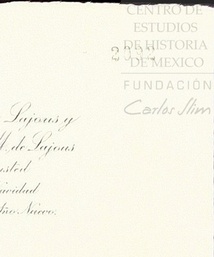 CENTRO DE
ESTUDIOS
DE HISTORIA
DE MEXICO
FUNDACIÓN
Carlos Slim
Lajous y
M. de Lajous
usted
avidad
Año Nuevo.